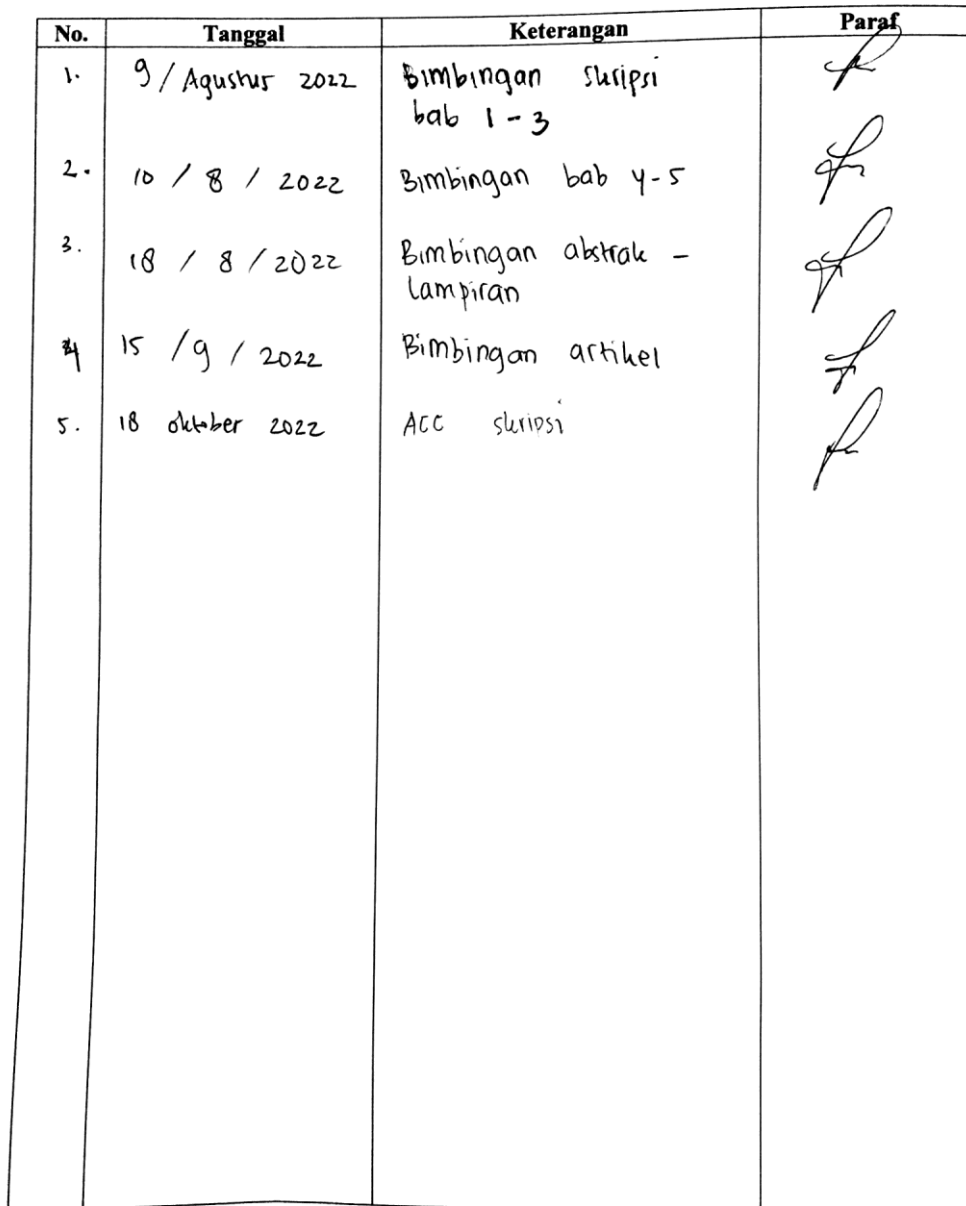 No. Tanggal Keterangan Paraf
1. 9 / Agustus 2022 Bimbingan skripsi
bab 1 - 3
2. 10 / 8 / 2022 Bimbingan bab 4-5
3. 18 / 8 / 2022 Bimbingan abstrak -
Lampiran
4 15 / 9 / 2022 Bimbingan artikel
5. 18 oktober 2022 ACC skripsi